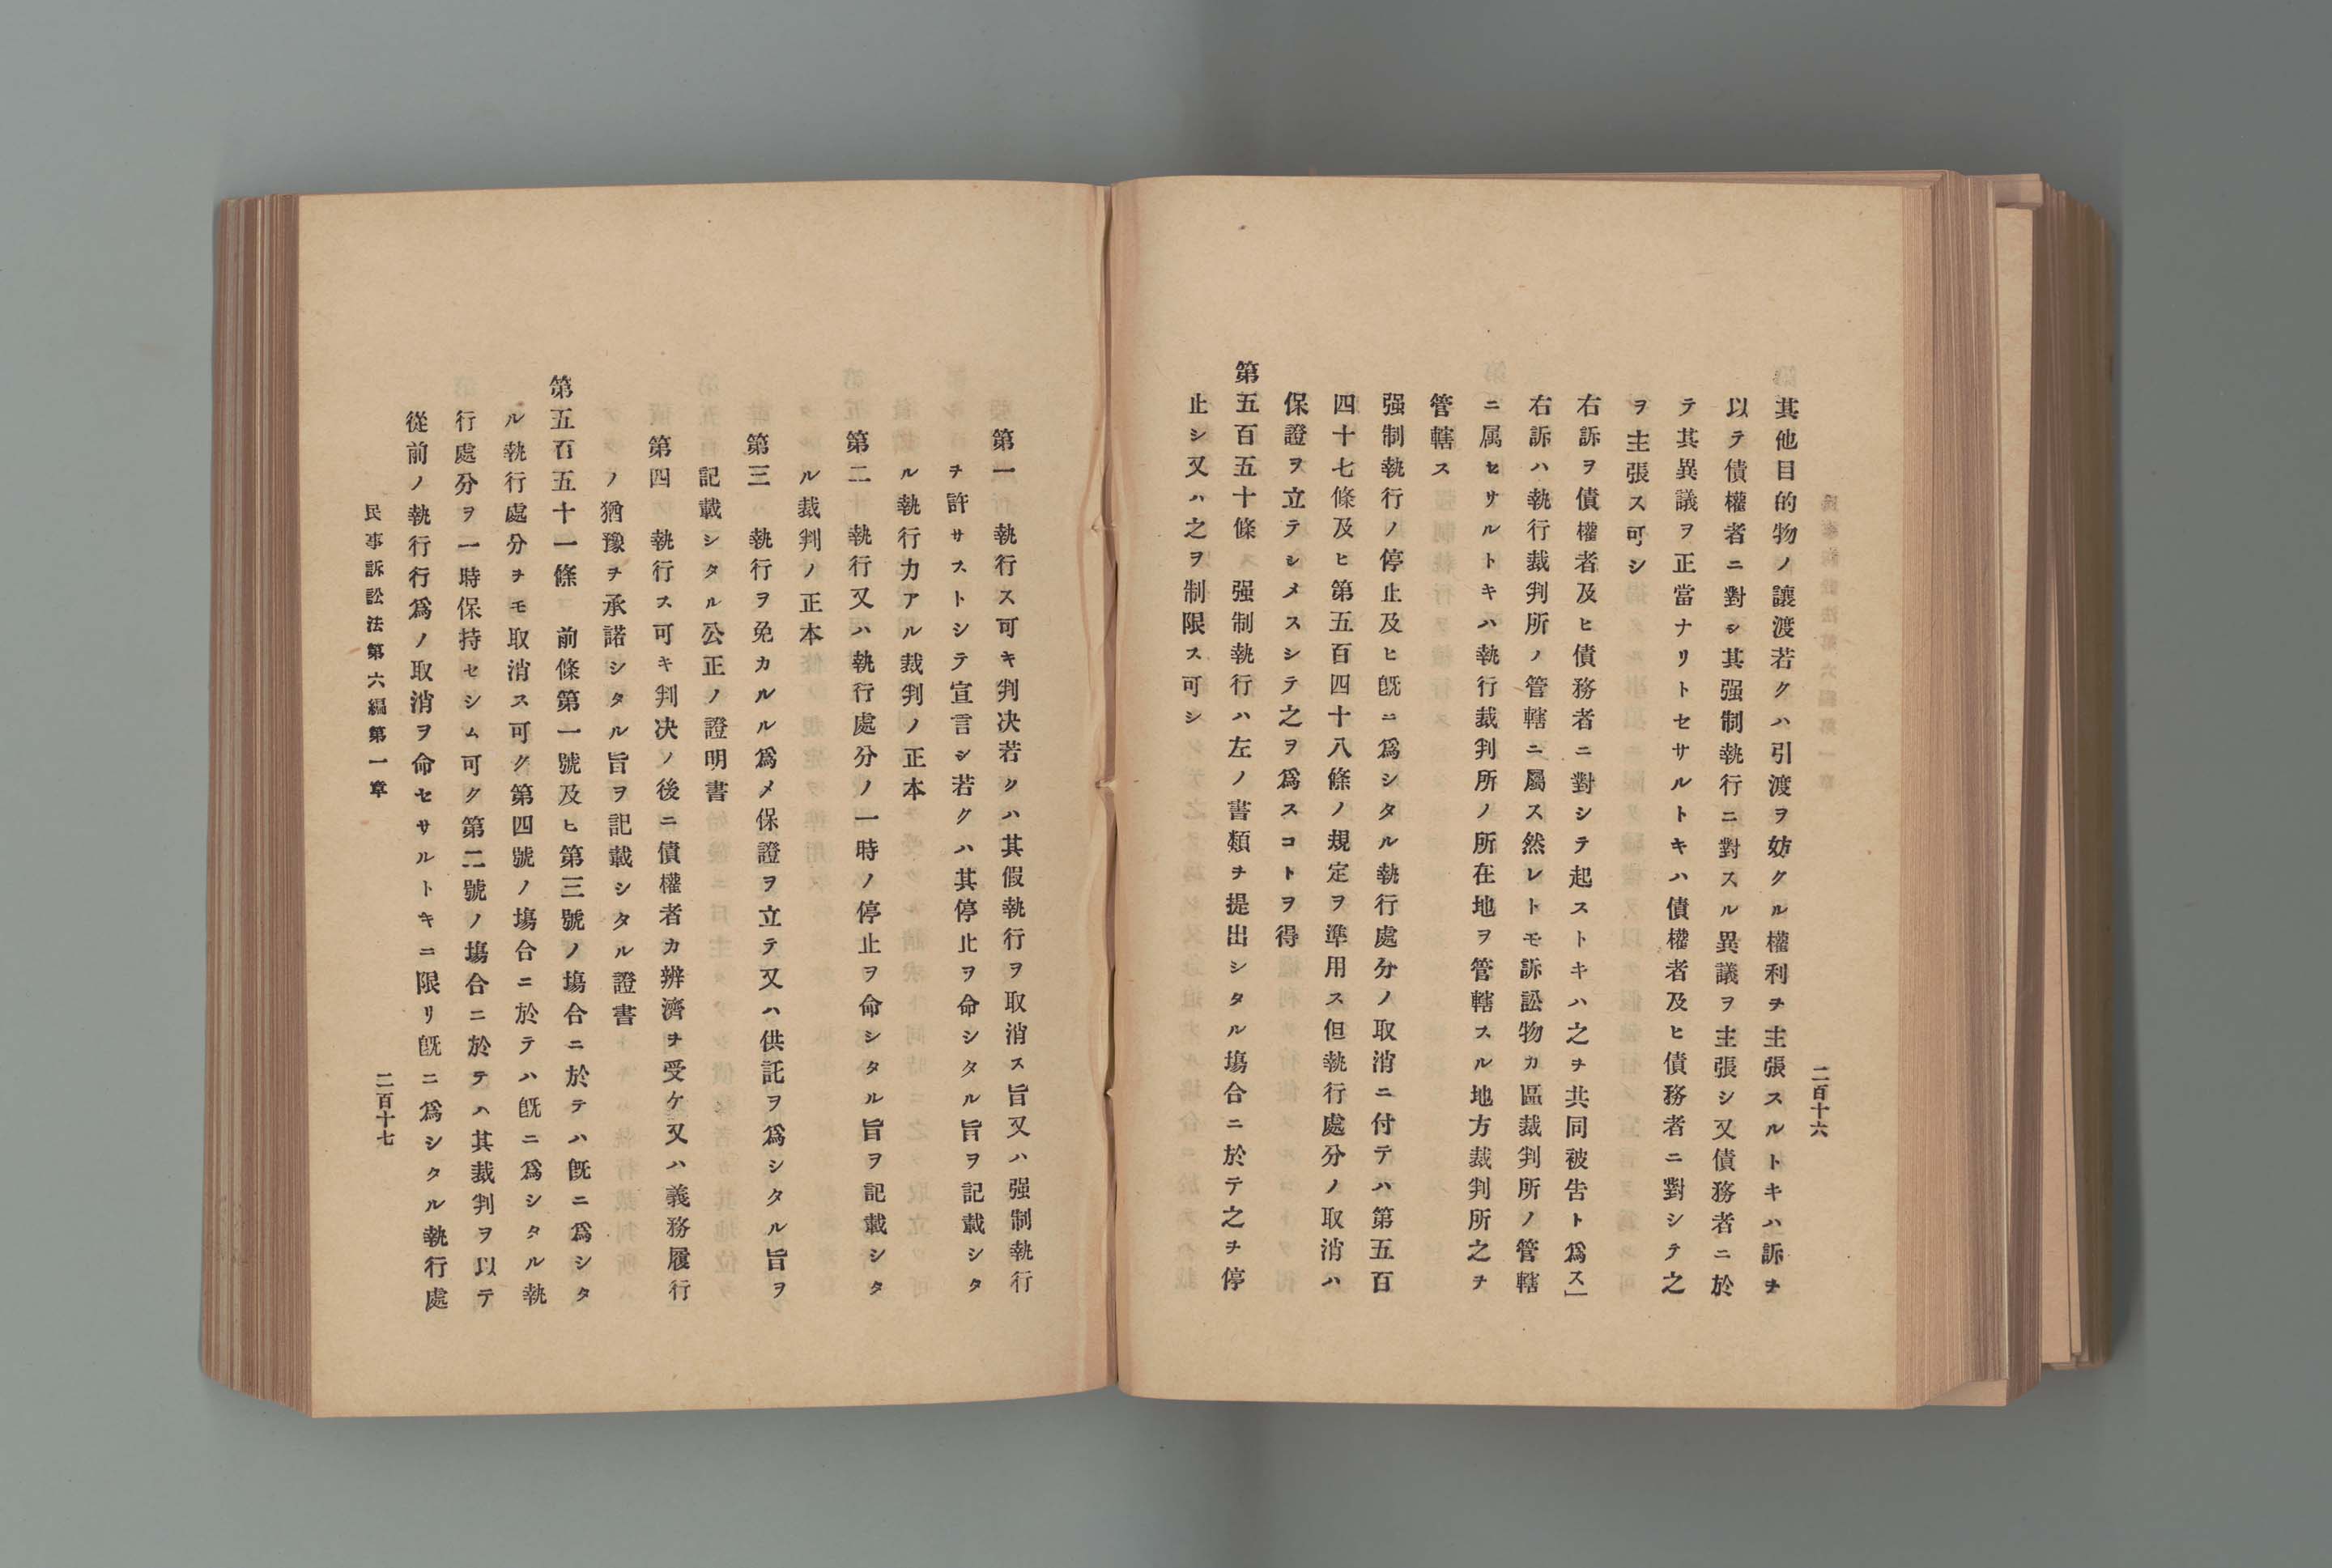 二百十六
其他目的物ノ讓渡若クハ引渡ヲ妨クル權利ヲ主張スルトキハ訴ヲ
以テ債權者ニ對シ其强制執行ニ對スル異議ヲ主張シ又債務者ニ於
テ其異議ヲ正當ナリトセサルトキハ債權者及ヒ債務者ニ對シテ之
ヲ主張ス可シ
右訴ヲ債權者及ヒ債務者ニ對シテ起ストキハ之ヲ共同被吿ト爲ス」
右訴ハ執行裁判所ノ管轄ニ屬ス然レトモ訴訟物カ區裁判所ノ管轄
ニ属セサルトキハ執行裁判所ノ所在地ヲ管轄スル地方裁判所之ヲ
管轄ス
强制執行ノ停止及ヒ旣ニ爲シタル執行處分ノ取消ニ付テハ第五百
四十七條及ヒ第五百四十八條ノ規定ヲ準用ス但執行處分ノ取消ハ
保證ヲ立テシメスシテ之ヲ爲スコトヲ得
第五百五十條　强制執行ハ左ノ書類ヲ提出シタル塲合ニ於テ之ヲ停
止シ又ハ之ヲ制限ス可シ
第一　執行ス可キ判决若クハ其假執行ヲ取消ス旨又ハ强制執行
ヲ許サストシテ宣言シ若クハ其停止ヲ命シタル旨ヲ記載シタ
ル執行力アル裁判ノ正本
第二　執行又ハ執行處分ノ一時ノ停止ヲ命シタル旨ヲ記載シタ
ル裁判ノ正本
第三　執行ヲ免カルル爲メ保證ヲ立テ又ハ供託ヲ爲シタル旨ヲ
記載シタル公正ノ證明書
第四　執行ス可キ判决ノ後ニ債權者カ辨濟ヲ受ケ又ハ義務履行
ノ猶豫ヲ承諾シタル旨ヲ記載シタル證書
第五百五十一條　前條第一號及ヒ第三號ノ塲合ニ於テハ旣ニ爲シタ
ル執行處分ヲモ取消ス可ク第四號ノ塲合ニ於テハ旣ニ爲シタル執
行處分ヲ一時保持セシム可ク第二號ノ塲合ニ於テハ其裁判ヲ以テ
從前ノ執行行爲ノ取消ヲ命セサルトキニ限リ旣ニ爲シタル執行處
民事訴訟法第六編第一章
二百十七